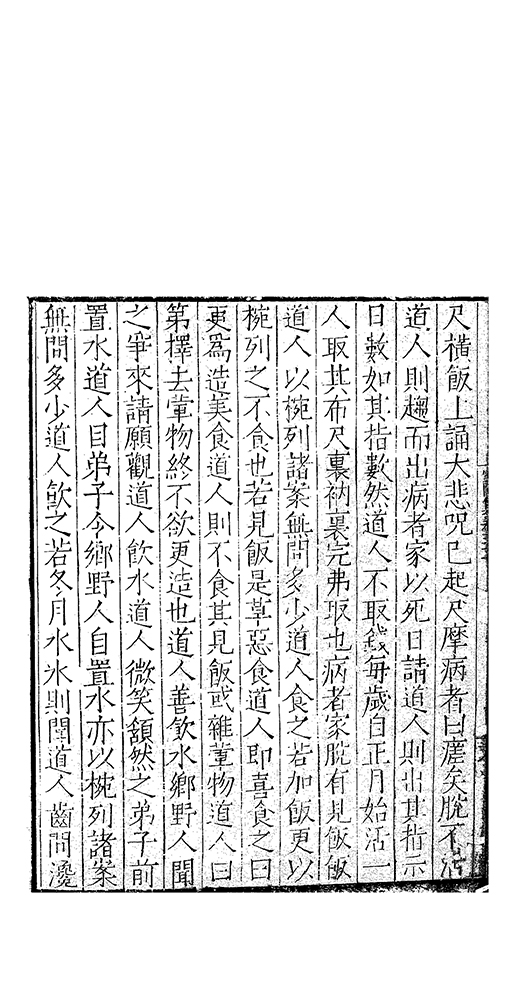 尺橫飯上誦大悲呪已起尺摩病者曰瘥矣脫不活
道人則趨而出病者家以死日請道人則出其指示
日數如其指數然道人不取錢每歲自正月始活一
人取其布尺裏衲裏完弗取也病者家脫有見飯飯
道人以椀列諸案無問多少道人食之若加飯更以
椀列之不食也若見飯是草惡食道人即喜食之曰
更為造美食道人則不食其見飯或雜葷物道人曰
第擇去葷物終不欲更造也道人善飲水鄉野人聞
之爭來請願觀道人飲水道人微笑頷然之弟子前
置水道人目弟子令鄉野人自置水亦以椀列諸案
無問多少道人飲之若冬月水冰則聞道人齒間瀺